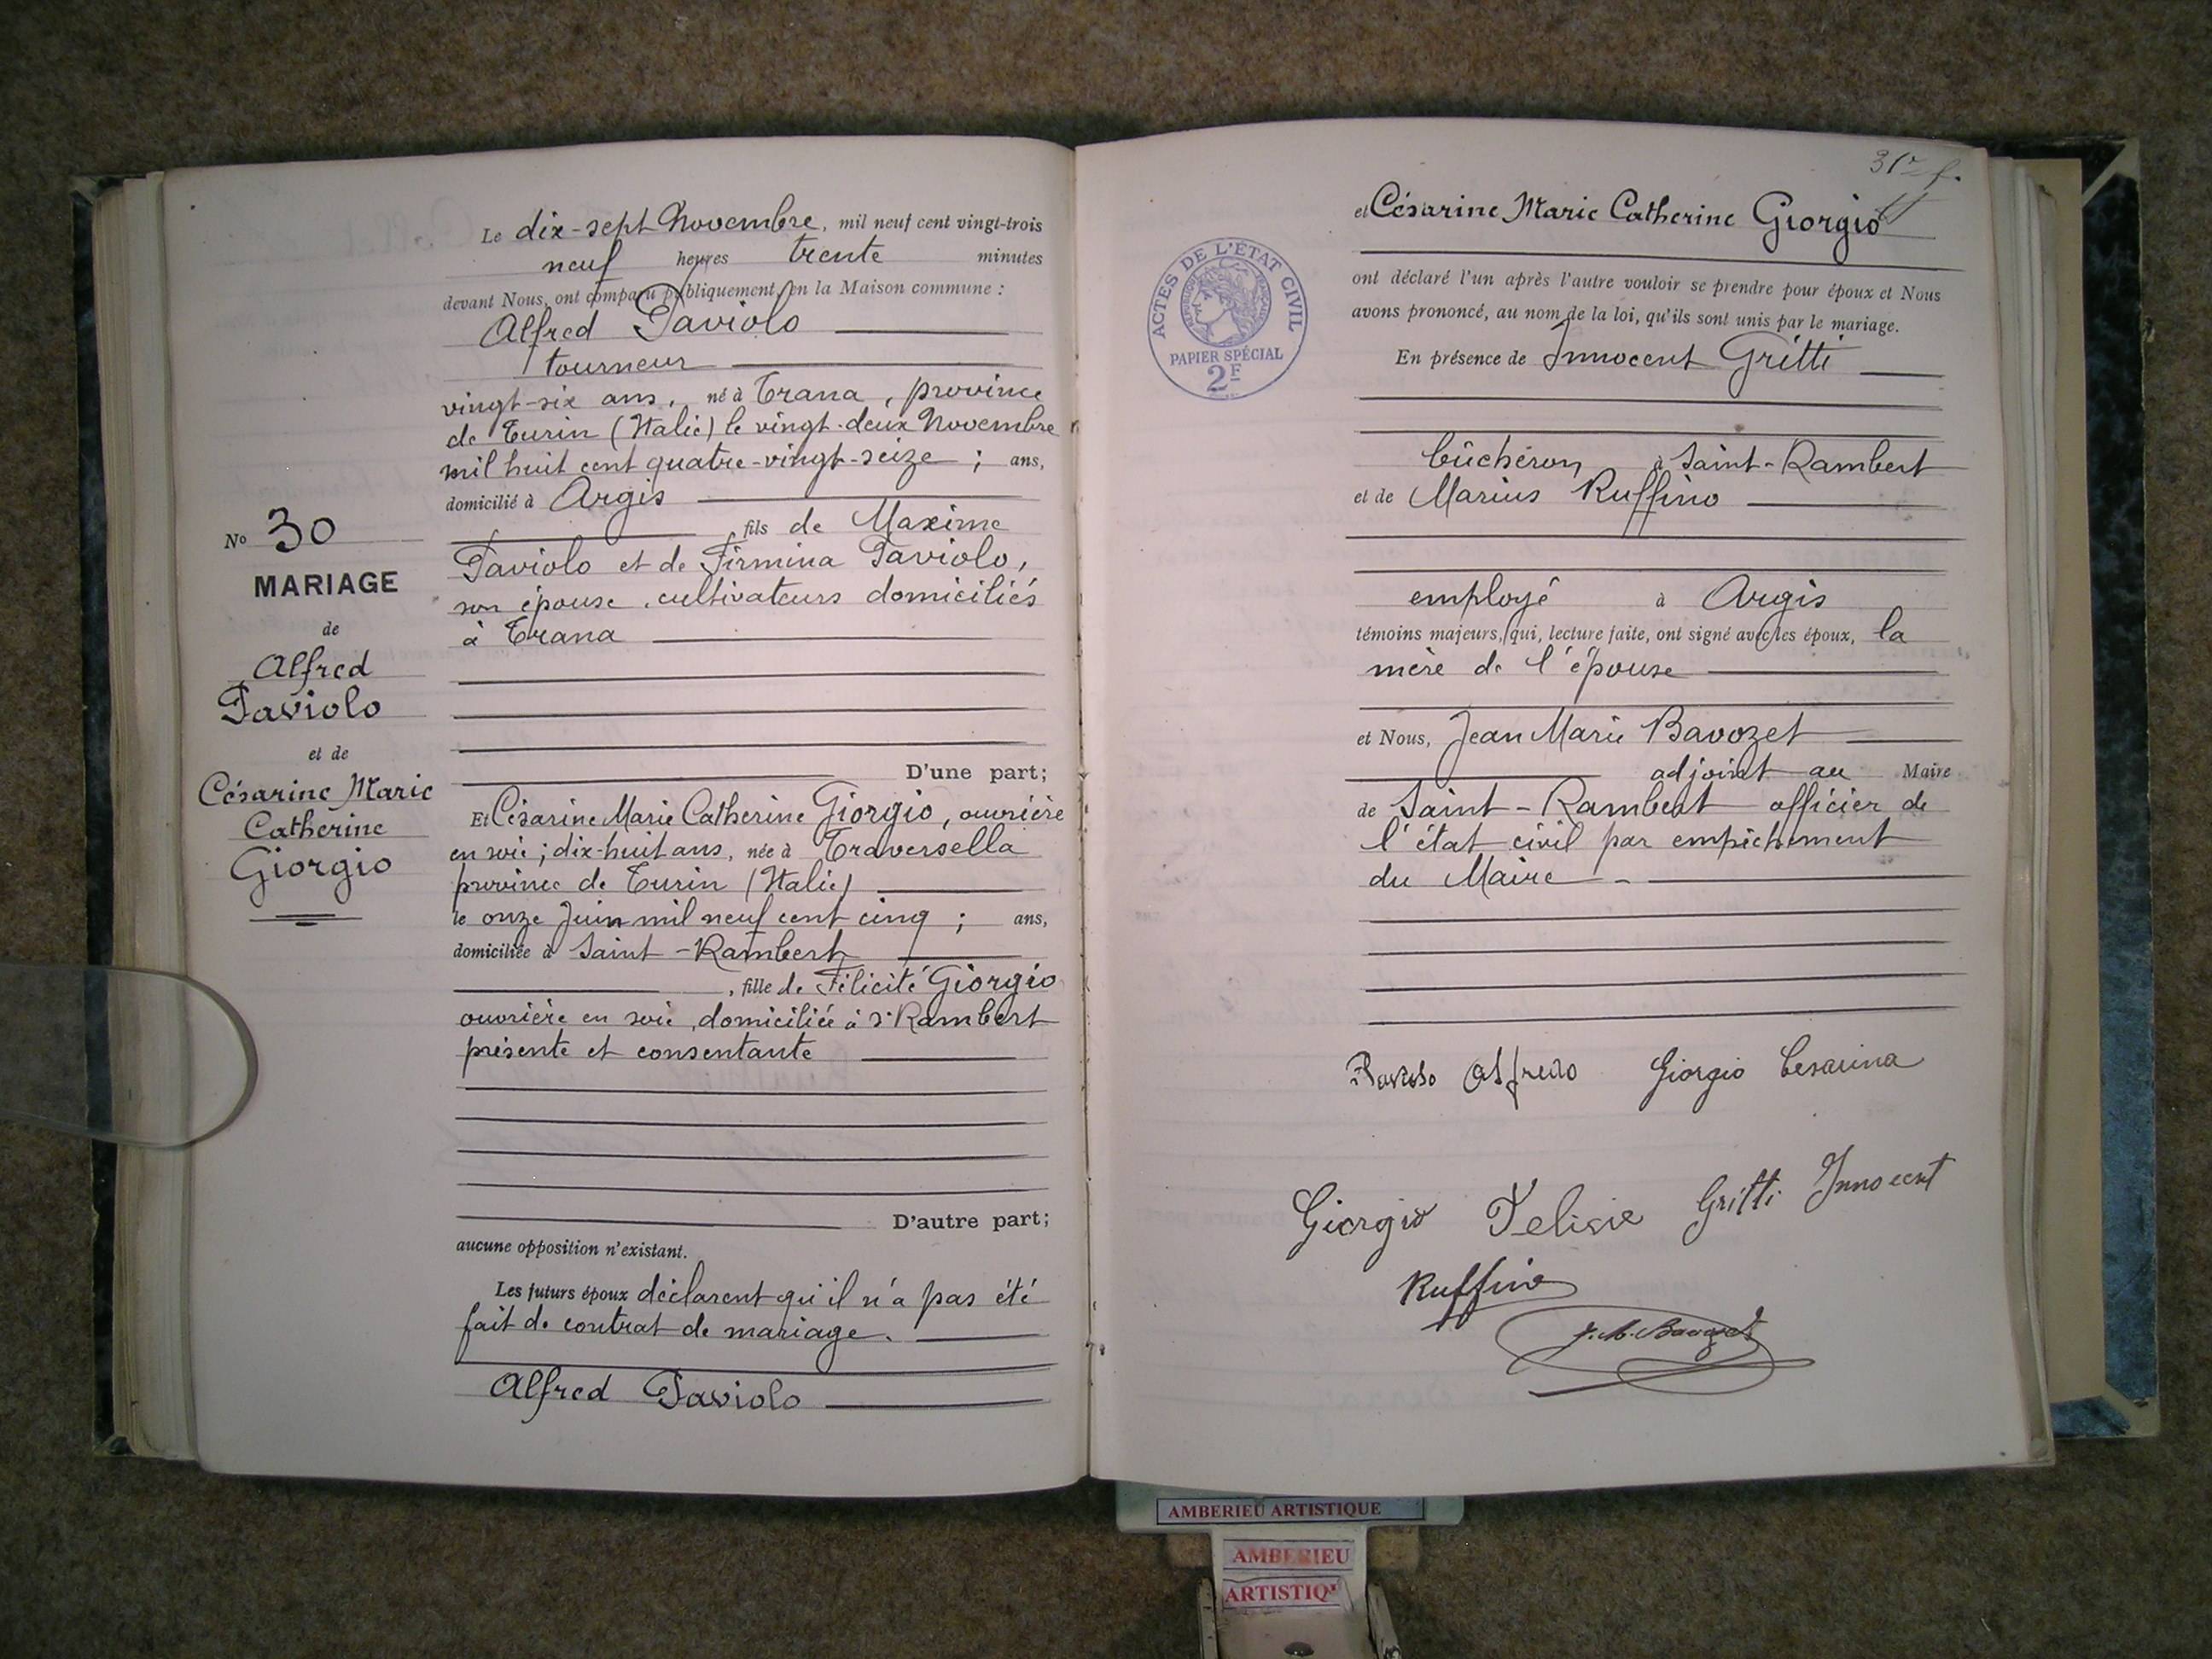 Le dix-sept Novembre, mil neuf cent vingt-trois
neuf heures trente minutes
devant Nous, ont comparu publiquement en la Maison commune :
Alfred Paviolo
tourneur
vingt-six ans, né à Trana, province
de Turin (Italie) le vingt-deux Novembre
mil huit cent quatre-vingt-seize ; ans,
domicilié à Argis
, fils de Maxime
Paviolo et de Firmina Paviolo,
son épouse, cultivateurs domiciliés
à Trana
D'une part;
Et Césarine Marie Catherine Giorgio, ouvrière
en soie ; dix-huit ans, née à Traversella
province de Turin (Italie)
le onze Juin mil neuf cent cinq ; ans,
domiciliée à Saint-Rambert
, fille de Félicité Giorgio
ouvrière en soie, domiciliée à St Rambert
présente et consentante
D'autre part;
aucune opposition n'existant.
Les futurs époux déclarent qu'il n'a pas été
fait de contrat de mariage.
Alfred Paviolo
No 30
MARIAGE
de
Alfred
Paviolo
et de
Césarine Marie
Catherine
Giorgio
et Césarine Marie Catherine Giorgio
ont déclaré l'un après l'autre vouloir se prendre pour époux et Nous
avons prononcé, au nom de la loi, qu'ils sont unis par le mariage.
En présence de Innocent Gritti
bûchéron à Saint-Rambert
et de Marius Ruffino
employé à Argis
témoins majeurs, qui, lecture faite, ont signé avec les époux, la
mère de l'épouse
et Nous, Jean Marie Bavozet
adjoint au Maire
de Saint-Rambert officier de
l'état civil par empêchement
du Maire
Alfredo Giorgio Cesarina
Giorgio Felisie Gritti Innocent
Ruffino
J. M. Bavozet
ACTES DE L'ÉTAT CIVIL
RÉPUBLIQUE FRANÇAISE
PAPIER SPÉCIAL
2F
AMBERIEU ARTISTIQUE
AMBERIEU
ARTISTIQ